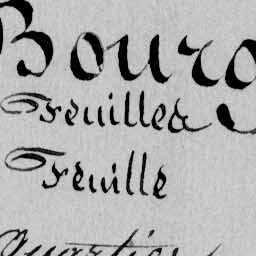 Bourg
Feuilles
Feuille
Quartier